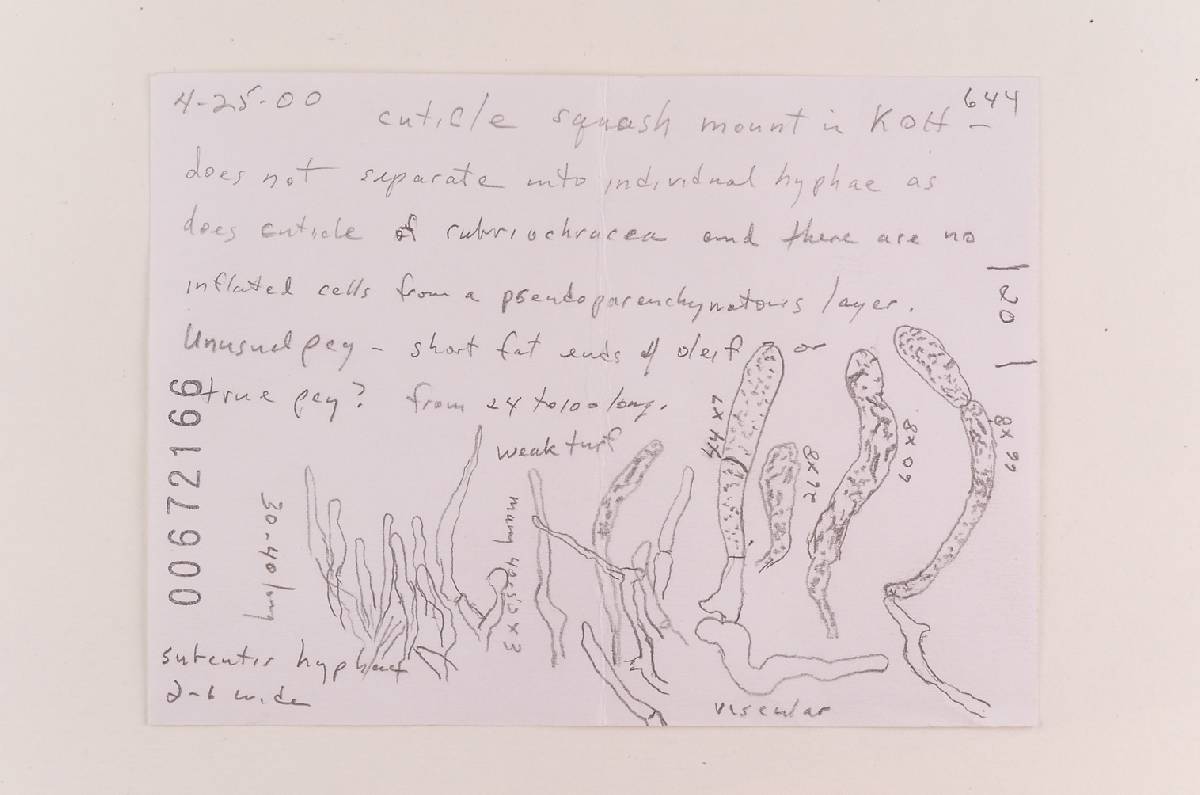 4-25-00
644
cuticle squash mount in KOH -
does not separate into individual hyphae as
does cuticle of rubriochracea and there are no
inflated cells from a pseudoparenchymatous layer.
Unusual pcy - short fat ends of oleif ? or
true pcy? from 24 to 100 long.
weak turf
|20|
00672166
30-40 long
many 40-50 x 3
44 x 7
8 x 12
8 x 60
8 x 99
subcutis hyphae
2-6 wide
viscular